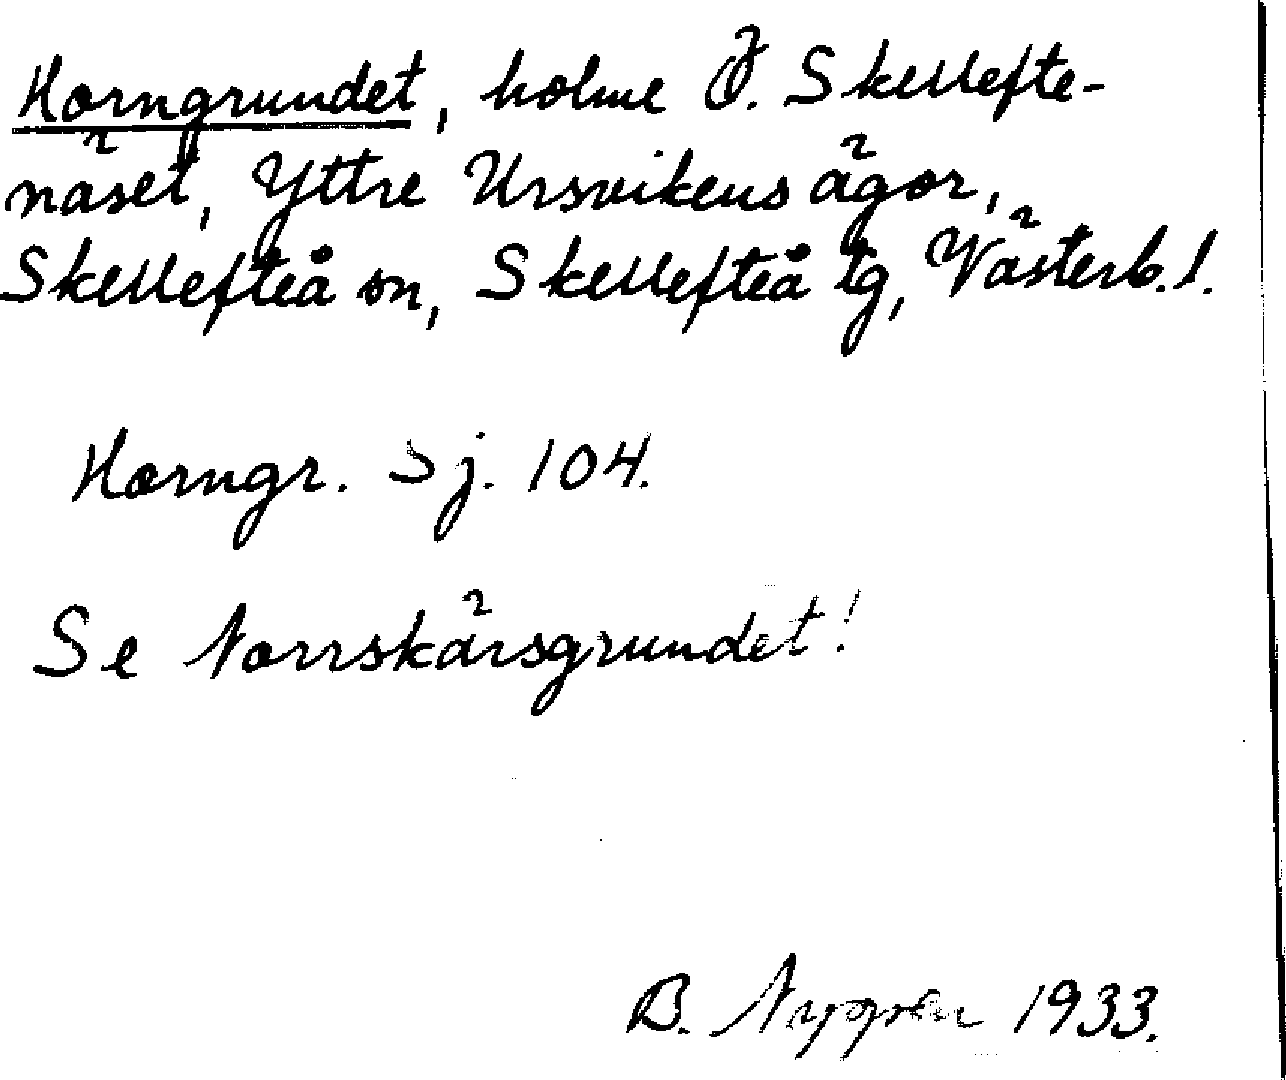 Korngrundet, holme Ö. Skellefte-
näset, Yttre Ursvikens ägor,
Skellefteå sn, Skellefteå tg, Västerb. l.
Korngr. Sj. 104.
Se Norrskärsgrundet!
B. Nygren 1933.